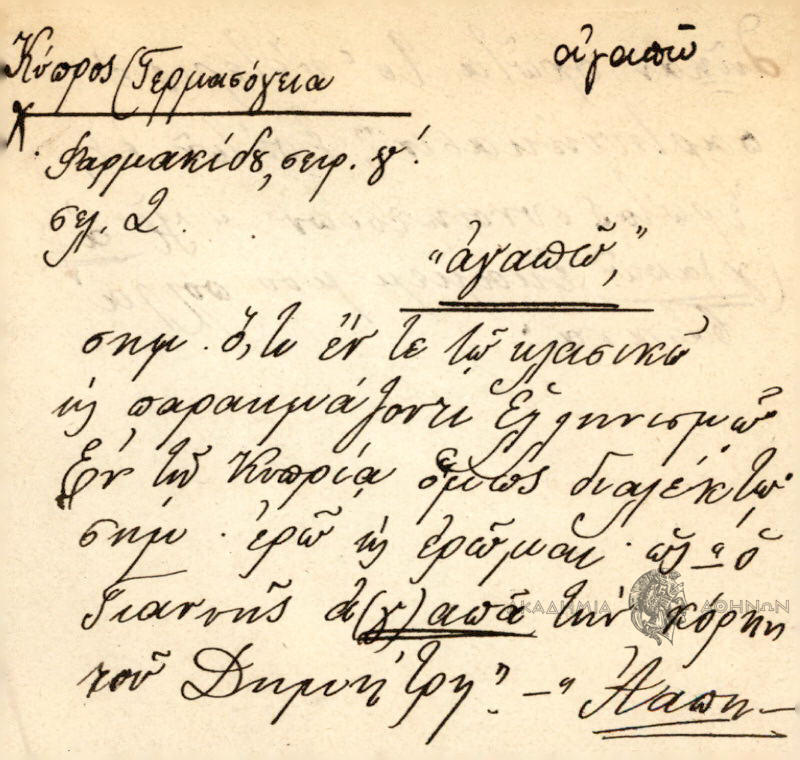 ἀγαπῶ
Κύπρος (Γερμασόγεια
Φαρμακίδου, σειρ. γ'.
σελ. 2.
"ἀγαπῶ,"
σημ. ὅ,τι ἔν τε τῷ κλασικῷ
καὶ παρακμάζοντι Ἑλληνισμῷ.
Ἐν τῇ Κυπρίᾳ ὅμως διαλέκτῳ
σημ. ἐρῶ καὶ ἐρῶμαι· ὡς "ὁ
Γιαννῆς ἀ(γ)απᾷ τὴν κόρην
τοῦ Δημήτρη". – "Ἀαπη–
ΑΚΑΔΗΜΙΑ ΑΘΗΝΩΝ